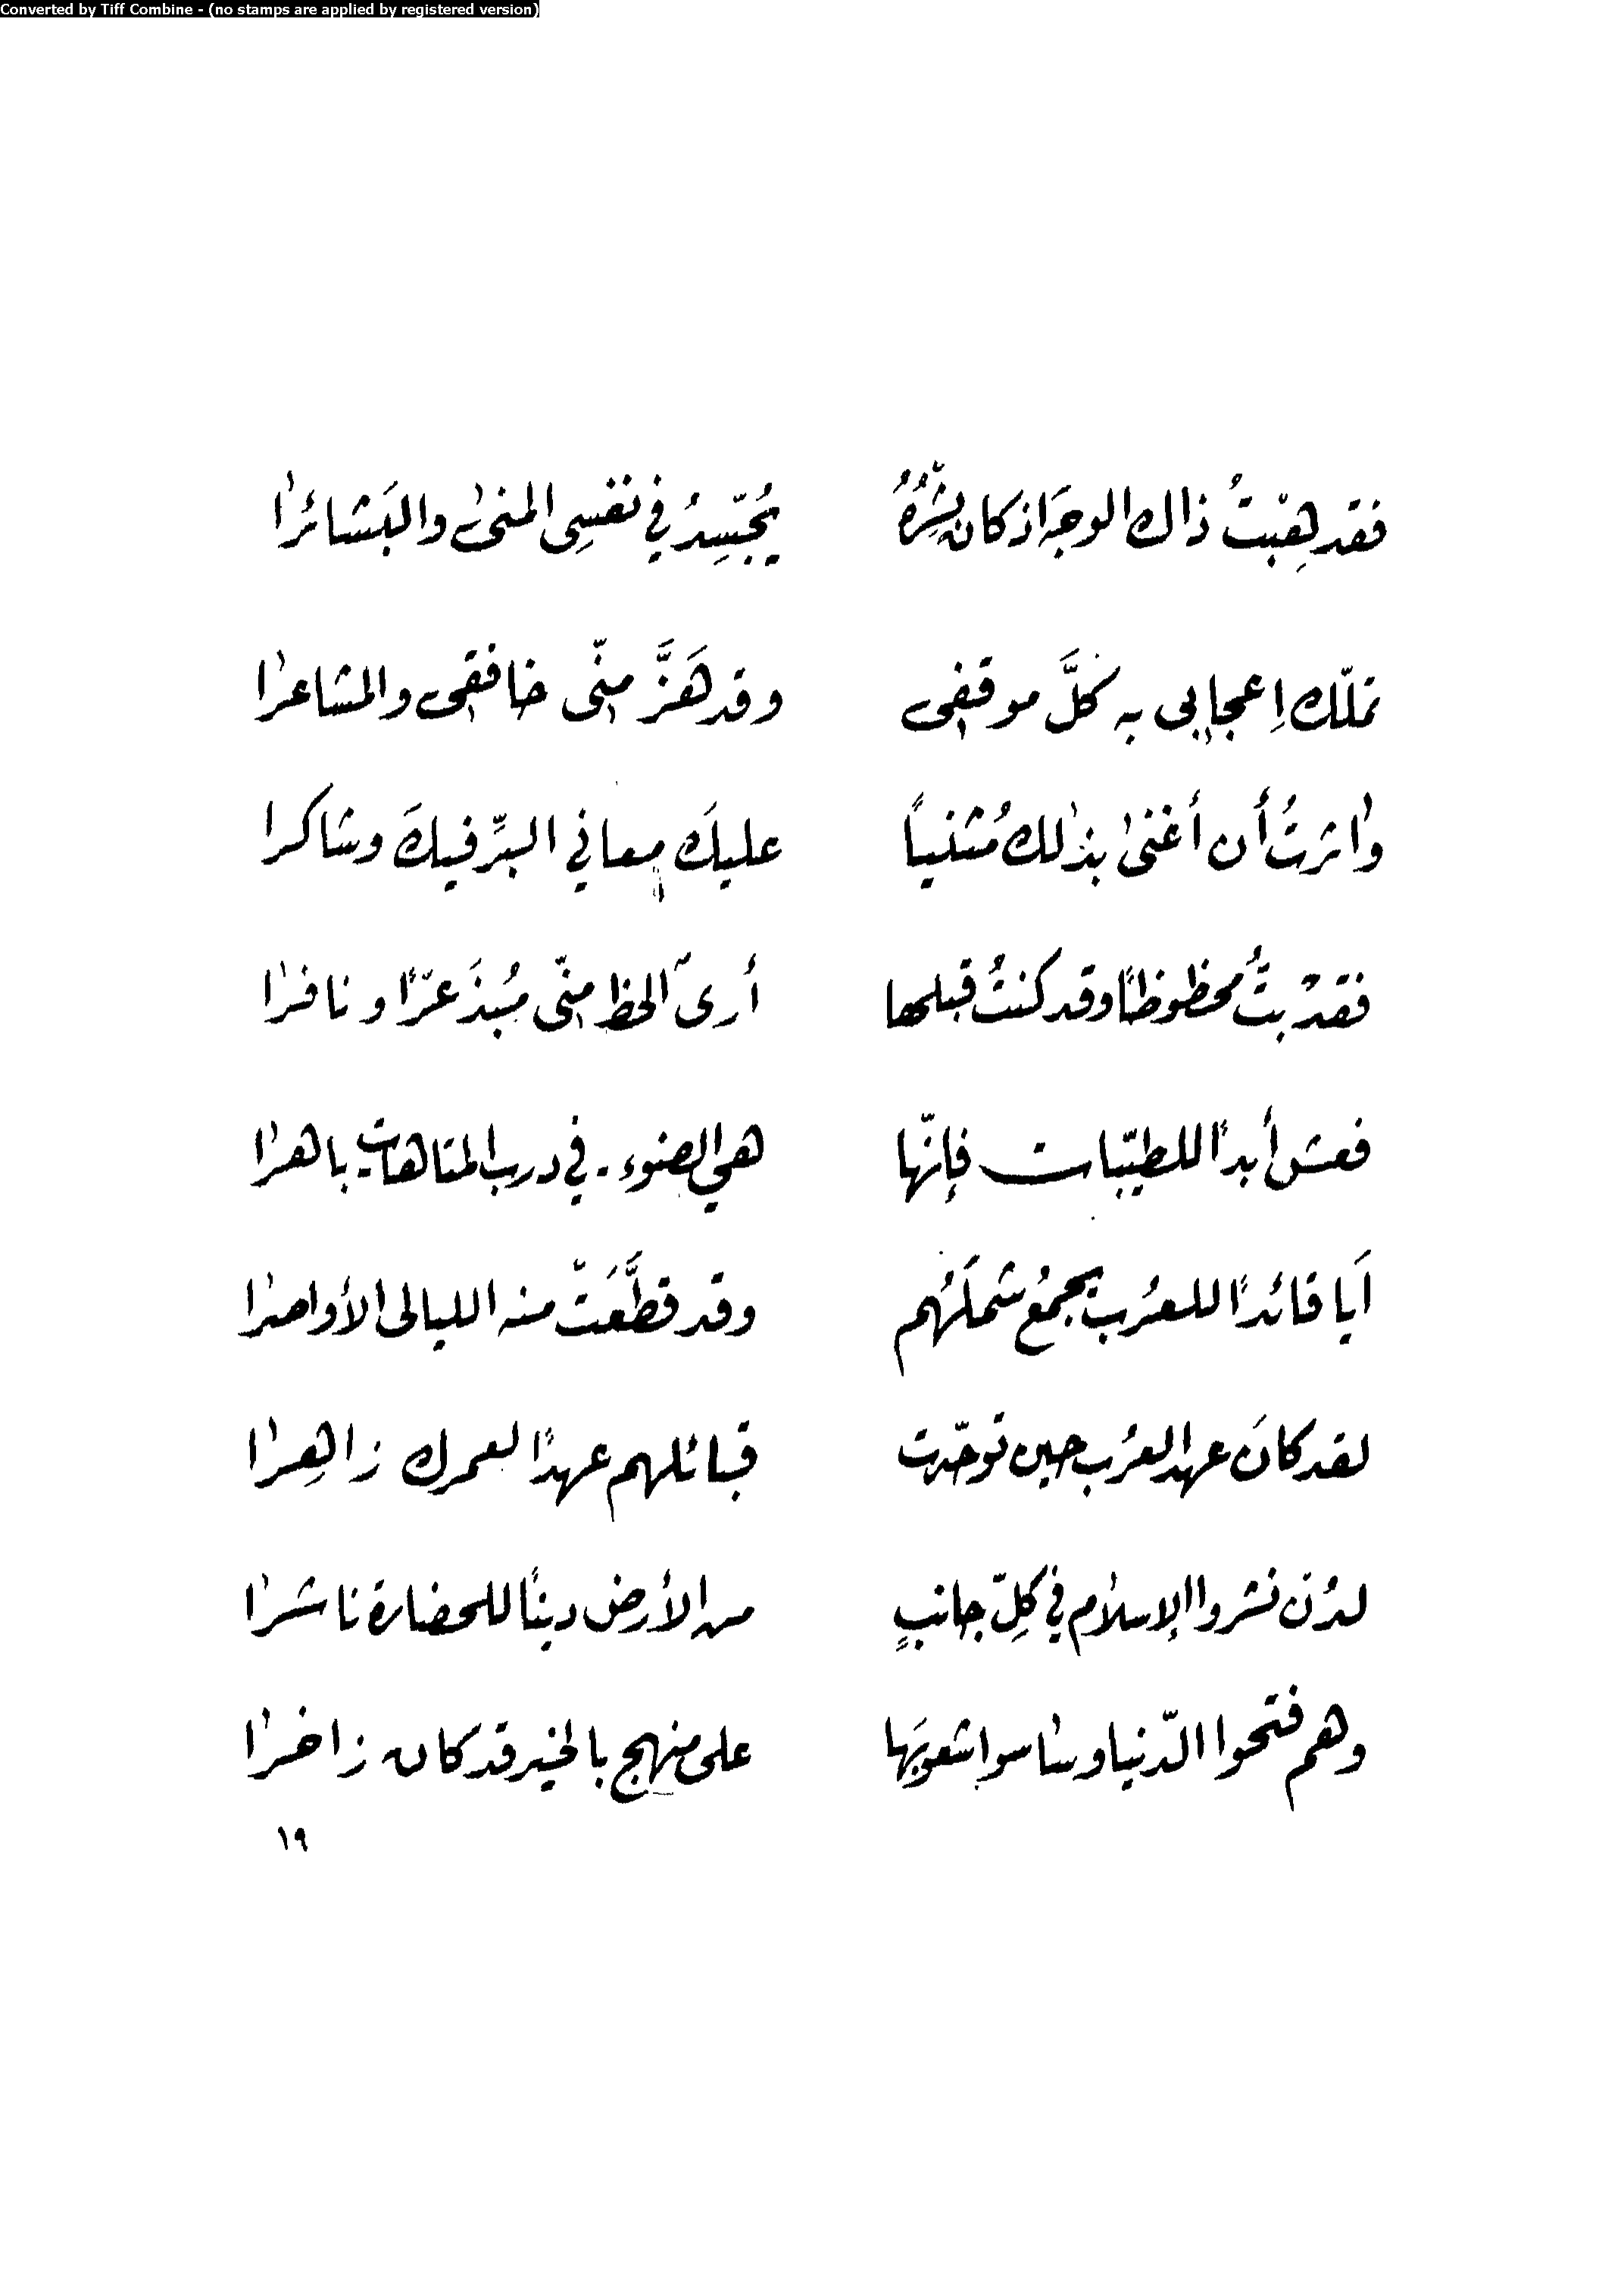 Converted by Tiff Combine - (no stamps are applied by registered version)
فقد هِبْتُ ذاك الوجهَ اذ كان بِشْرُهُ يُجَسِّدُ في نفسِي المنىٰ والبَشائرا
تملّك اِعجابي به كلَّ موقفي وقد هَزَّ منّي خافقي والمشاعرا
واٰثرتُ أن أغنىٰ بذٰلك مُثنياً عليكَ معاني البرِّ فيكَ وشاكرا
فقدْ بتُّ محظوظاً وقد كنتُ قبلها أرىٰ الحظ منّي مُبذَعرّاً ونافرا
فعش أبداً للطيّبات فإنّها هي الضوء . في درب المتاهاتِ . باهرا
اَيا قائداً للعُرب يجمعُ شملَهُم وقد قطَّعَتْ منه الليالي الأواصرا
لقد كانَ عهد العُرب حين توحّدت قبائلهم عهداً لعمرك زاهِرا
لدُن نشروا الإسلام في كلِّ جانبٍ من الأرض ديناً للحضارة ناشرا
وهم فتحوا الدّنيا وساسوا شعوبَها على منهج بالخير قد كان زاخرا
١٩